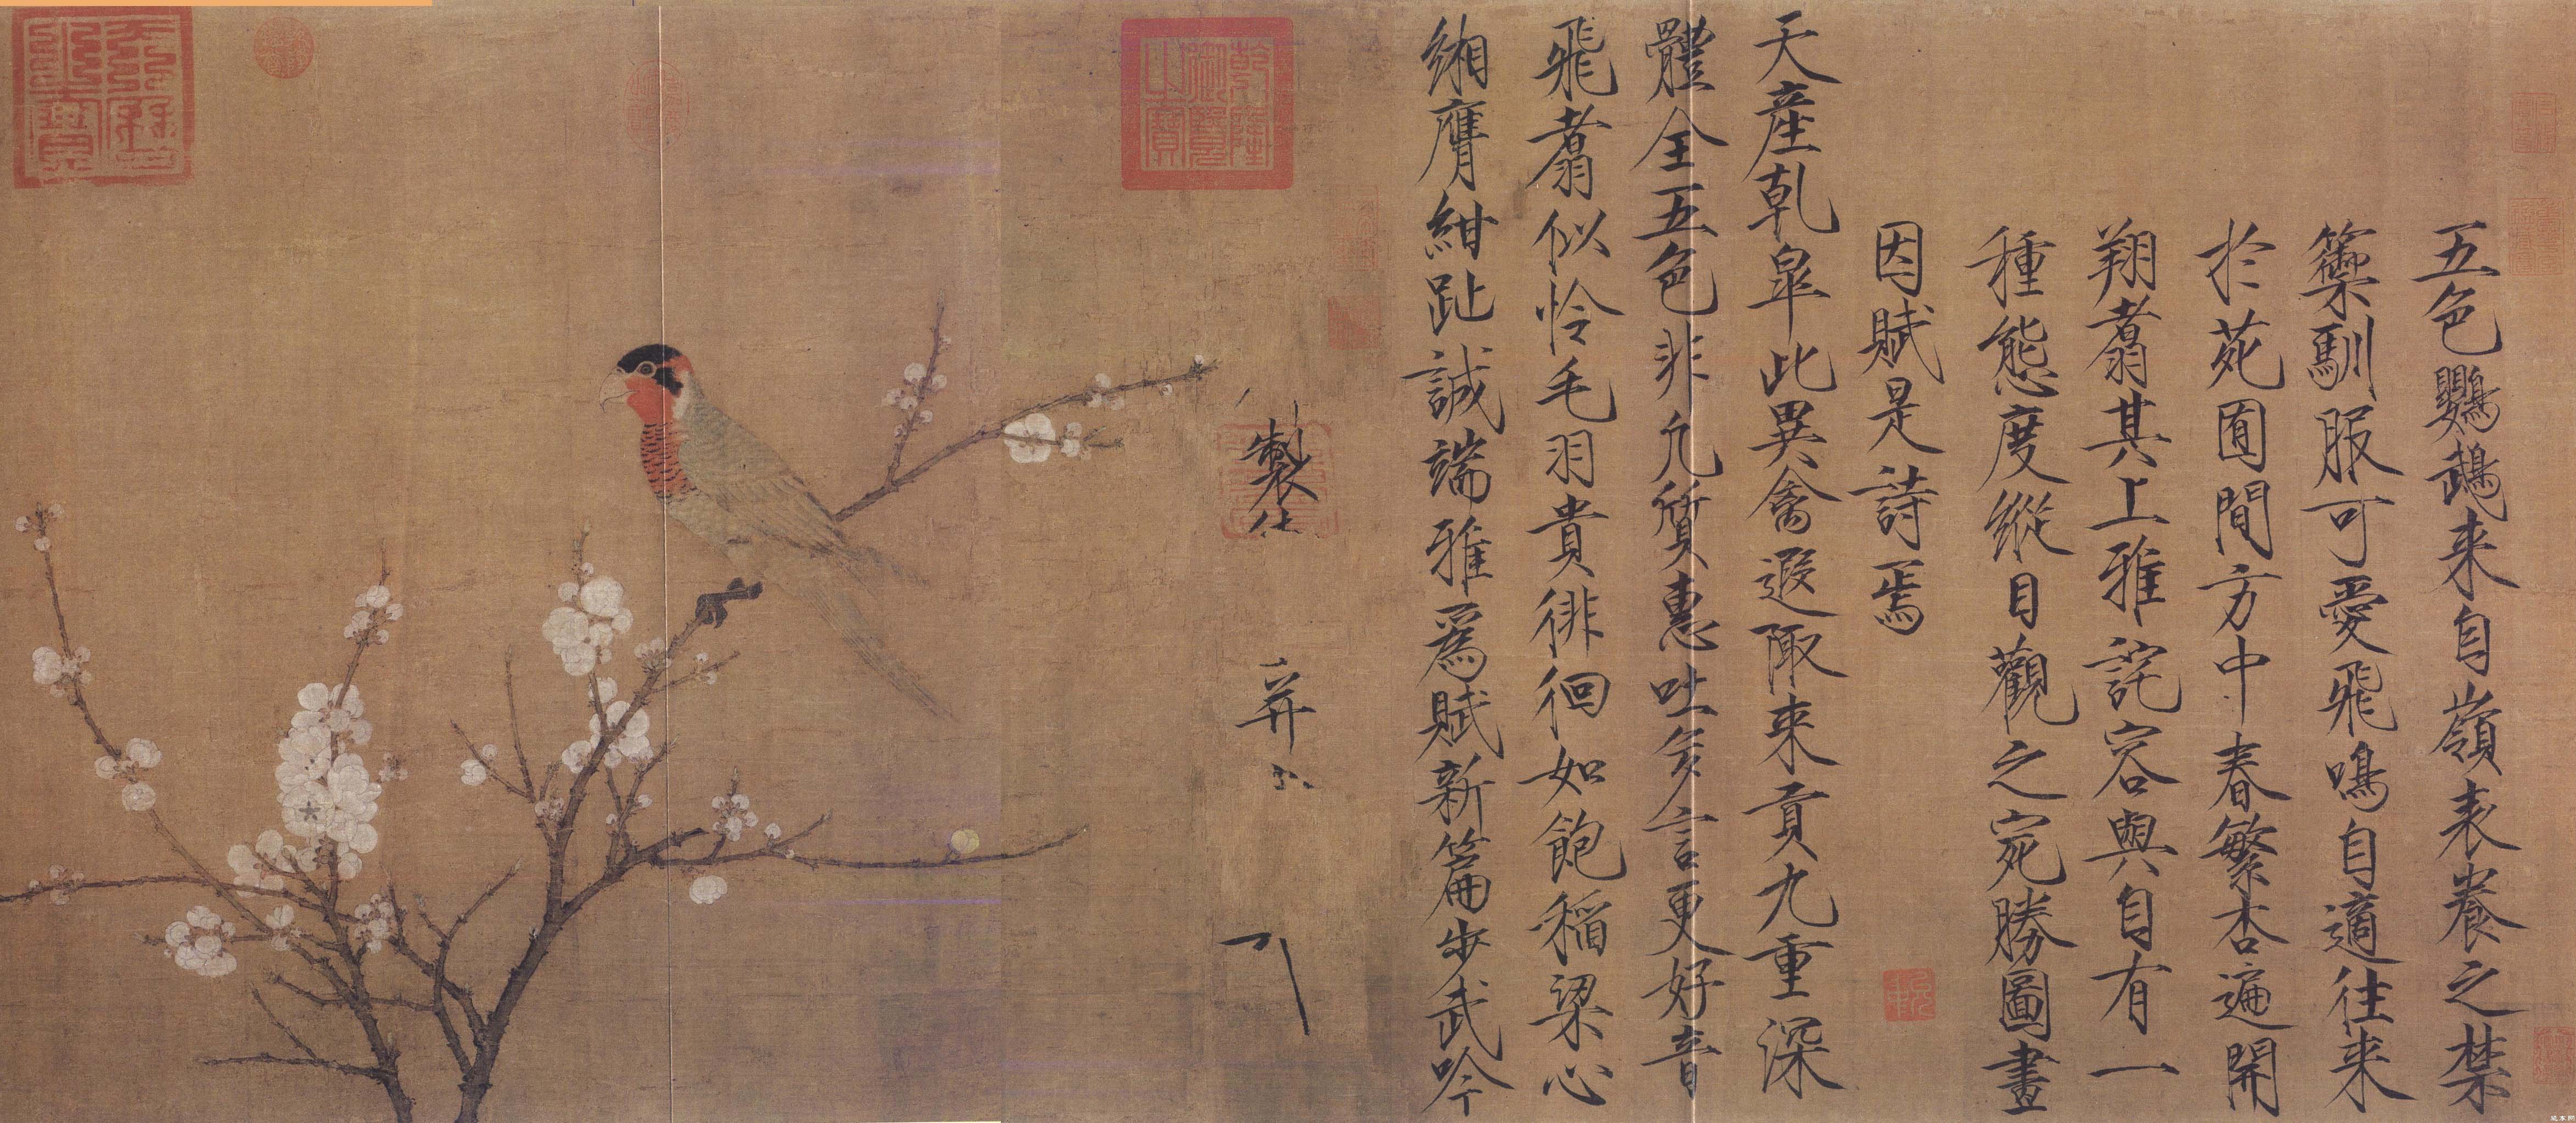 五色鸚鵡来自嶺表養之禁
籞馴服可愛飛鳴自適往来
於苑囿間方中春繁杏遍開
翔翥其上雅詫容與自有一
種態度縱目觀之宛勝圖畫
因賦是詩焉
天產乾皐此異禽遐陬来貢九重深
體全五色非凡質惠吐多言更好音
飛翥似怜毛羽貴徘徊如飽稻粱心
緗膺紺趾誠端雅為賦新篇步武吟
製
并
乾隆御覽之寶